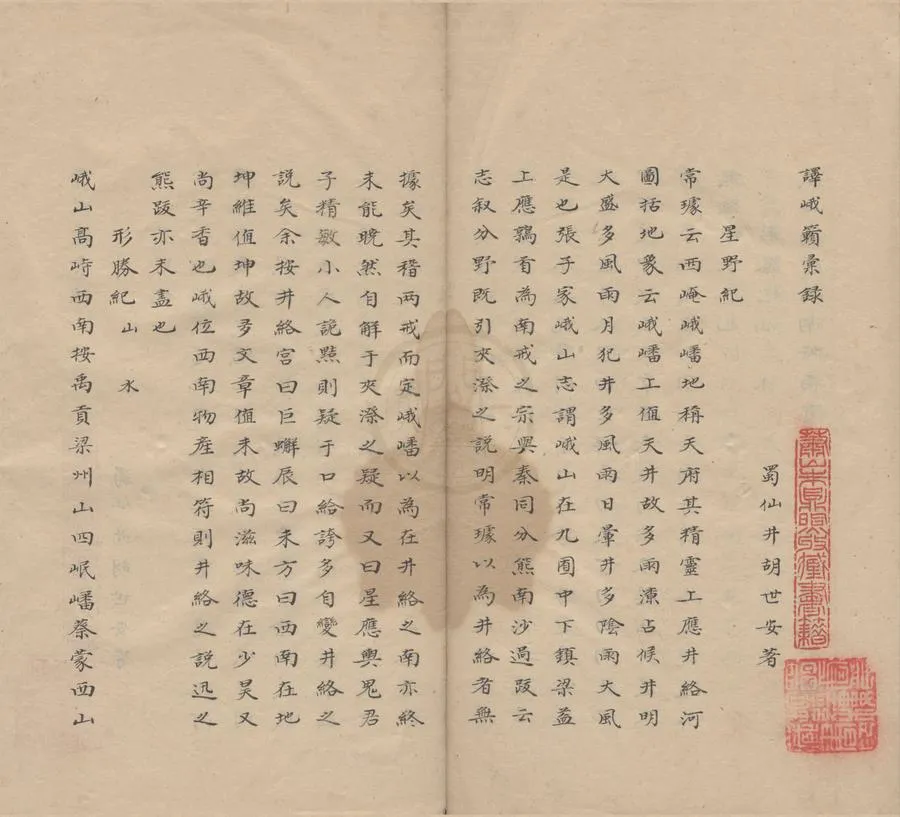 譯峨籟彙録
蜀仙井胡世安著
星野紀
常璩云西崦峨嶓地稱天府其精靈上應井絡河
圖括地象云峨嶓上值天井故多雨潦占候井明
大盛多風雨月犯井多風雨日暈井多陰雨大風
是也張子家峨山志謂峨山在九囿中下鎮梁益
上應鶉首為南戒之宗與秦同分熊南沙過跋云
志叙分野既引夾漈之説明常璩以為井絡者無
據矣其稽两戒而定峨嶓以為在井絡之南亦終
未能晓然自解于夾漈之疑而又曰星應輿鬼君
子精敏小人詭黠則疑于口給誇多自變井絡之
説矣余按井絡宫曰巨蠏辰曰未方曰西南在地
坤維值坤故多文章值未故尚滋味德在少昊又
尚辛香也峨位西南物產相符則井絡之説迅之
熊跋亦未盡也
形勝紀山水
峨山髙峙西南按禹貢梁州山四岷嶓蔡蒙西山